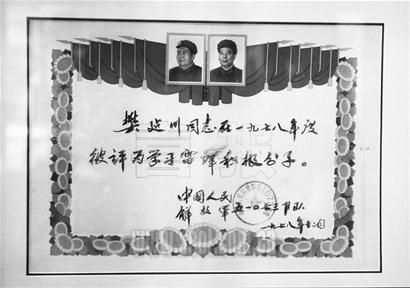 樊建川同志在一九七八年被
被评为学习雷锋积极分子。
中国人民
解放军五一〇七三部队
一九七八年十二月